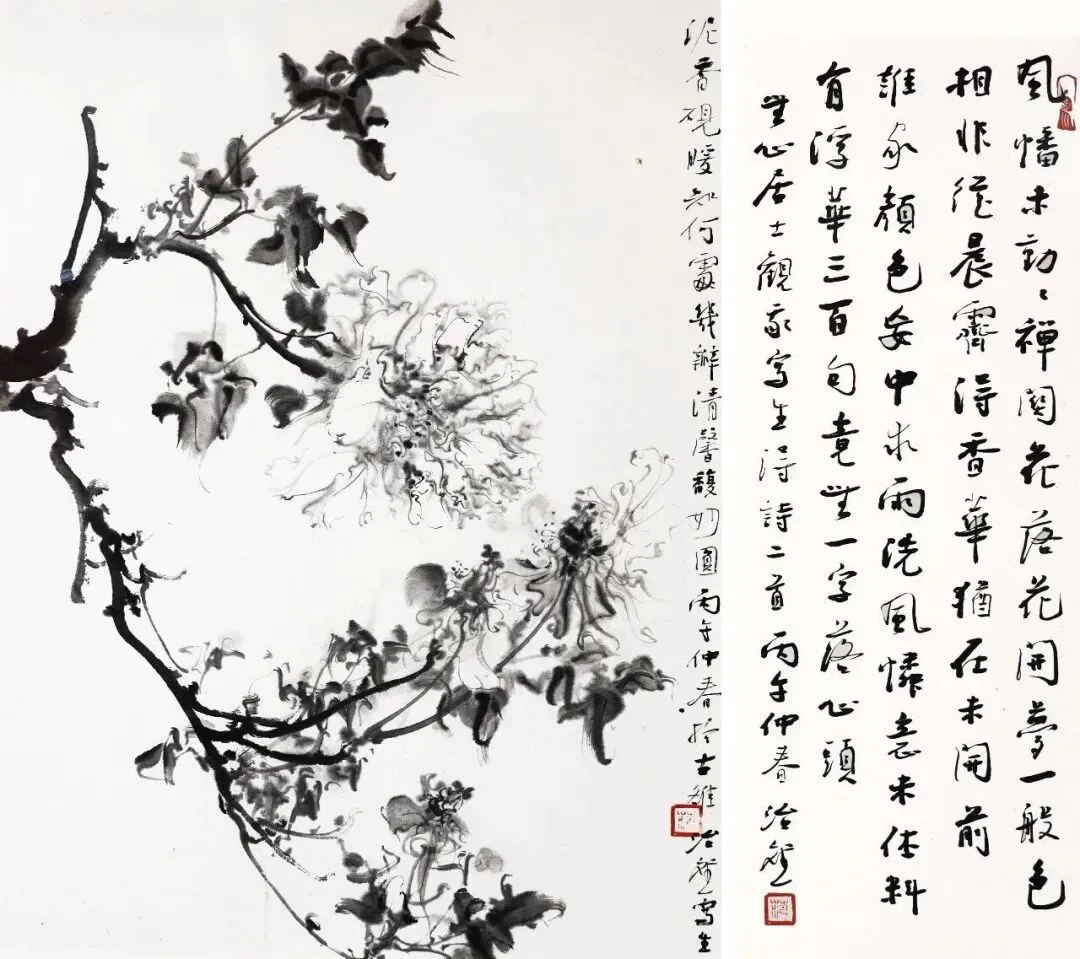 泥香硯暖知何處幾瓣清馨馥如圓丙午仲春於古雒治寫生
風幡未動〻禪關花落花開夢一般色
相非從晨霽得香華猶在未開前
誰家顏色妄中求雨洗風憐意未休料
有浮華三百句竟無一字落心頭
無心居士觀我寫生得詩二首丙午仲春治